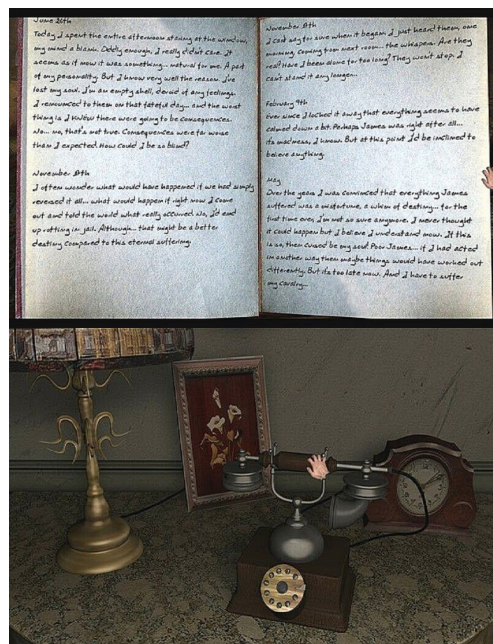 June 26th
Today I spent the entire afternoon staring at the window,
my mind a blank. Oddly enough, I really didn't care. It
seems as if now it was something... natural for me. A part
of my personality. But I know very well the reason. I've
lost my soul. I'm an empty shell, devoid of any feelings.
I renounced to them on that fateful day... and the worst
thing is I knew there were going to be consequences.
No... no, that's not true. Consequences were far worse
than I expected. How could I be so blind?
November
I often wonder what would have happened if we had simply
reversed it all... what would happen if right now I came
out and told the world what really occurred. No, I'd end
up rotting in jail. Although... that might be a better
destiny compared to this eternal suffering.
November
I can't say for sure when it began. I just heard them, one
morning, coming from next room... the whispers. Are they
real? Have I been alone for too long? They won't stop. I
can't stand it any longer...
February 9th
Ever since I locked it away that everything seems to have
calmed down a bit. Perhaps James was right after all...
its madness, I know. But at this point I'd be inclined to
believe anything.
May
Over the years I was convinced that everything James
suffered was a misfortune, a whim of destiny... for the
first time ever, I'm not so sure anymore. I never thought
it could happen but I believe I understand now. If this
is so, then cursed be my soul. Poor James... if I had acted
in another way then maybe things would have worked out
differently. But its too late now. And I have to suffer
my